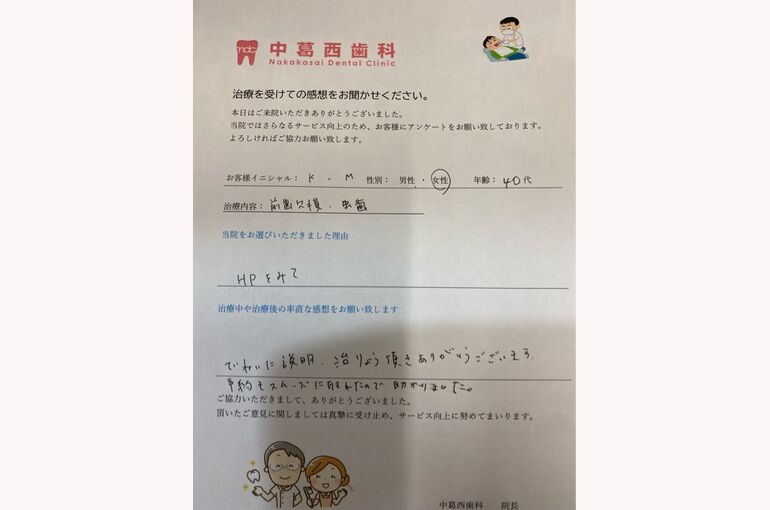 mdc 中葛西歯科
Nakakasai Dental Clinic
治療を受けての感想をお聞かせください。
本日はご来院いただきありがとうございました。
当院ではさらなるサービス向上のため、お客様にアンケートをお願い致しております。
よろしければご協力お願い致します。
お客様イニシャル： K ・ M 性別： 男性 ・ 女性 年齢： 40代
治療内容： 前歯欠損・虫歯
当院をお選びいただきました理由
HPをみて
治療中や治療後の率直な感想をお願い致します
ていねいに説明、治りょう頂きありがとうございます。
予約もスムーズに取れたので助かりました。
ご協力いただきまして、ありがとうございました。
頂いたご意見に関しましては真摯に受け止め、サービス向上に努めてまいります。
中葛西歯科 院長